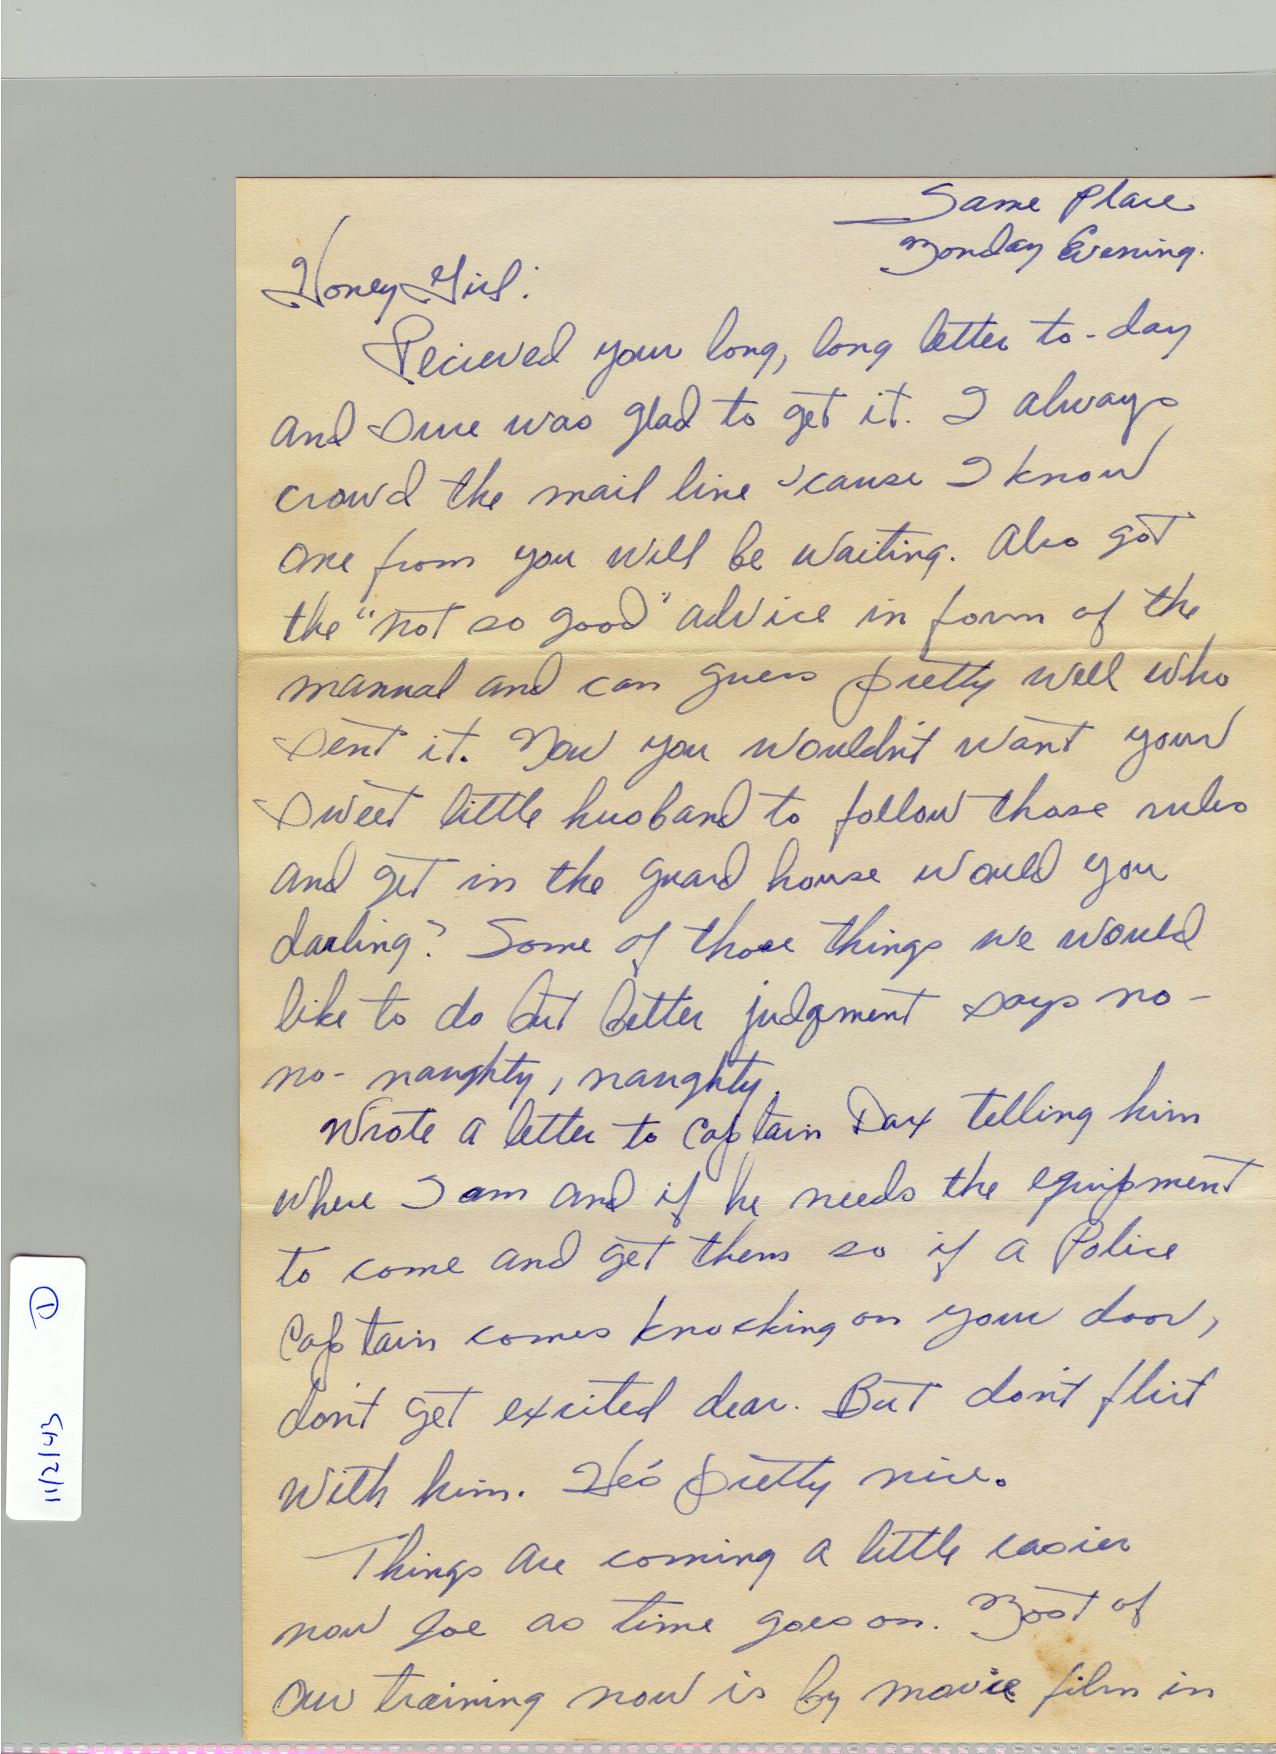 Same Place
Monday Evening.
Honey Girl:
Recieved your long, long letter to-day
and sure was glad to get it. I always
crowd the mail line 'cause I know
one from you will be waiting. Also got
the "not so good" advice in form of the
manual and can guess pretty well who
sent it. Now you wouldn't want your
sweet little husband to follow those rules
and get in the guard house would you
darling? Some of those things we would
like to do but better judgment says no-
no- naughty, naughty.
Wrote a letter to Captain Dax telling him
where I am and if he needs the equipment
to come and get them so if a Police
Captain comes knocking on your door,
don't get excited dear. But don't flirt
with him. He's pretty nice.
Things are coming a little easier
now Joe as time goes on. Most of
our training now is by movie film in
11/2/43 ①